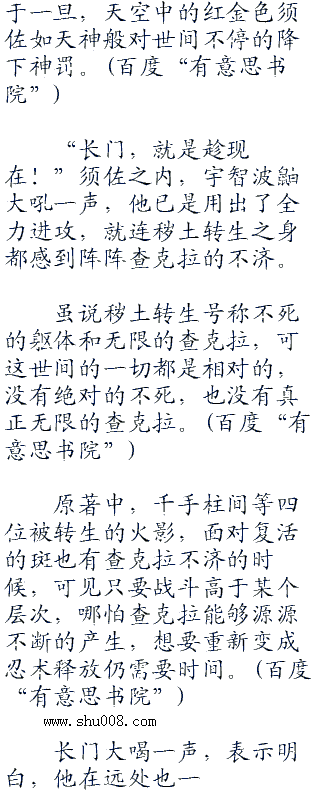 于一旦，天空中的红金色须
佐如天神般对世间不停的降
下神罚。(百度“有意思书
院”)
“长门，就是趁现
在！”须佐之内，宇智波鼬
大吼一声，他已是用出了全
力进攻，就连秽土转生之身
都感到阵阵查克拉的不济。
虽说秽土转生号称不死
的躯体和无限的查克拉，可
这世间的一切都是相对的，
没有绝对的不死，也没有真
正无限的查克拉。(百度“有
意思书院”)
原著中，千手柱间等四
位被转生的火影，面对复活
的斑也有查克拉不济的时
候，可见只要战斗高于某个
层次，哪怕查克拉能够源源
不断的产生，想要重新变成
忍术释放仍需要时间。(百度
“有意思书院”)
www.shu008.com
长门大喝一声，表示明
白，他在远处也一